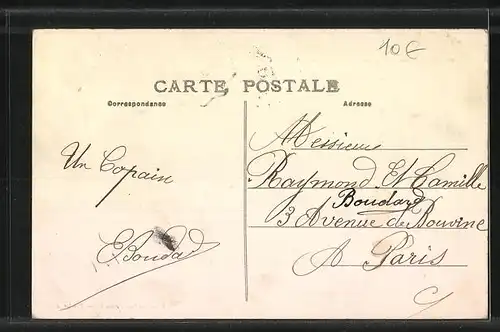 10€
CARTE POSTALE
Correspondance
Adresse
Un Copain
E. Boudard
Messieurs
Raymond Et Camille
Boudard
3 Avenue de Bouvine
A Paris